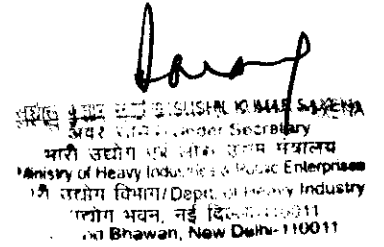 SUSHIL KUMAR SAXENA
अवर सचिव/Under Secretary
भारी उद्योग एवं लोक उद्यम मंत्रालय
Ministry of Heavy Industries & Public Enterprises
उद्योग विभाग/Deptt. of Heavy Industry
उद्योग भवन, नई दिल्ली-110011
Bhawan, New Delhi-110011